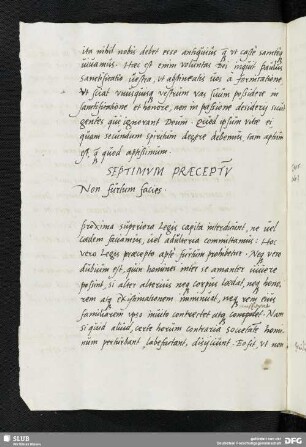 ita nihil nobis debet esse antiquius, q̃ vt castè sanctéq;
viuamus. Haec est enim voluntas Dei inquit Paulus
sanctificatio vestra, vt abstineatis vos à fornicatione
Vt sciat vnusquisq; vestrum vas suum possidere in
sanctificatione et honore, non in passione desiderij sicut
gentes quae ignorant Deum. Quod ipsum vitae ei
quam secundum spiritum degere debemus, tam aptum
est, q̃ quod aptissimum.
SEPTIMVM PRÆCEPTV̄
Non furtum facies.
Proxima superiora Legis capita interdicunt, ne vel
caedem faciamus, vel adulteria committamus: Hoc
vero Legis praecepto aptè furtum prohibetur. Neq; vero
dubium est, quin homines inter se amanter viuere
possint, si alter alterius neq; corpus laedat, neq; hono-
rem atq; existimationem imminuat, neq; rem eius
familiarem ipso inuito contrectet atq; compilet. Nam
si quid aliud, certe horum contraria societatē homi-
num perturbant labefactant, disijciunt. Eo fit, vt non
SLUB